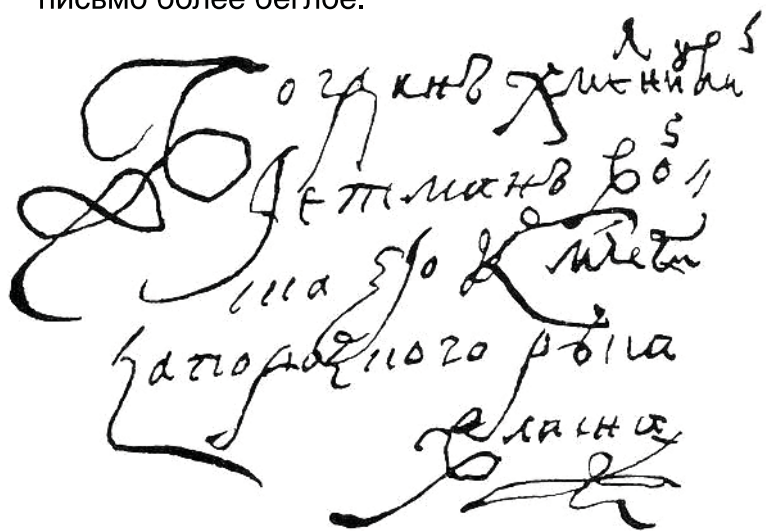 письмо более беглое.
Богданъ
Гетманъ Вой
ска Его К Млсти
Запорозкого рука
власна